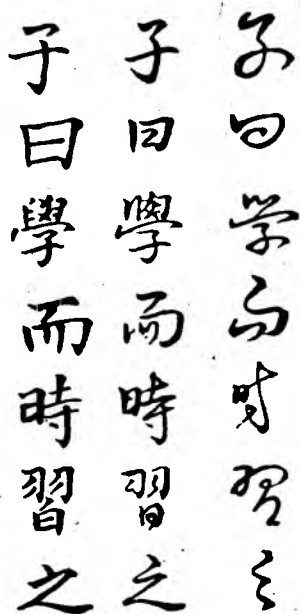 子曰学而时習之
子曰學而時習之
子曰學而時習之